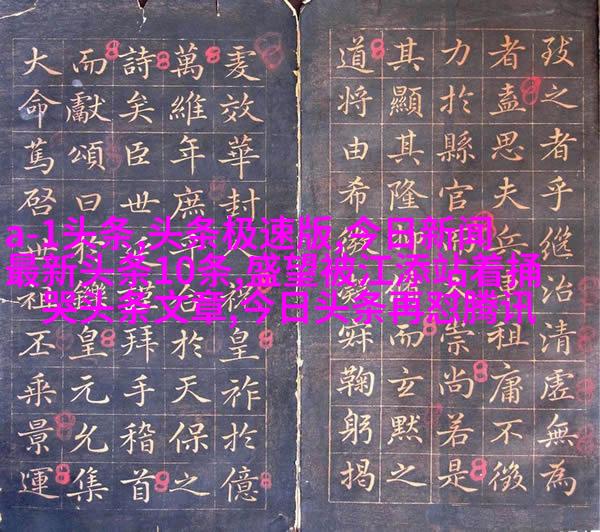 致之者乎繼治清虛無為
者盍思夫兵租庸不徵
力於縣官崇尚若是
其顯其隆而玄默之
道將由希鞠躬揭
爰效華封祝皇祚於億
萬維年庶於天保之
詩矣臣世拜手稽首
而獻頌曰皇元允集
大命篤啓世祖丕乘景運
a-1头条,头条极速版,今日新闻
最新头条10条,盛望被江添站着捅
哭头条文章,今日头条再怼腾讯